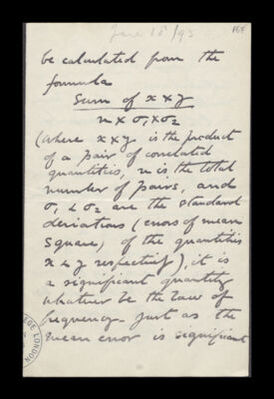 June 15/95
be calculated from the
formula
Sum of x × y
n × σ₁ × σ₂
(where x × y is the product
of a pair of correlated
quantities, n is the total
number of pairs, and
σ₁ & σ₂ are the standard
deviations (errors of mean
square) of the quantities
x & y respectively), it is
a significant quantity
whatever be the law of
frequency just as the
mean error is significant
GE LONDON